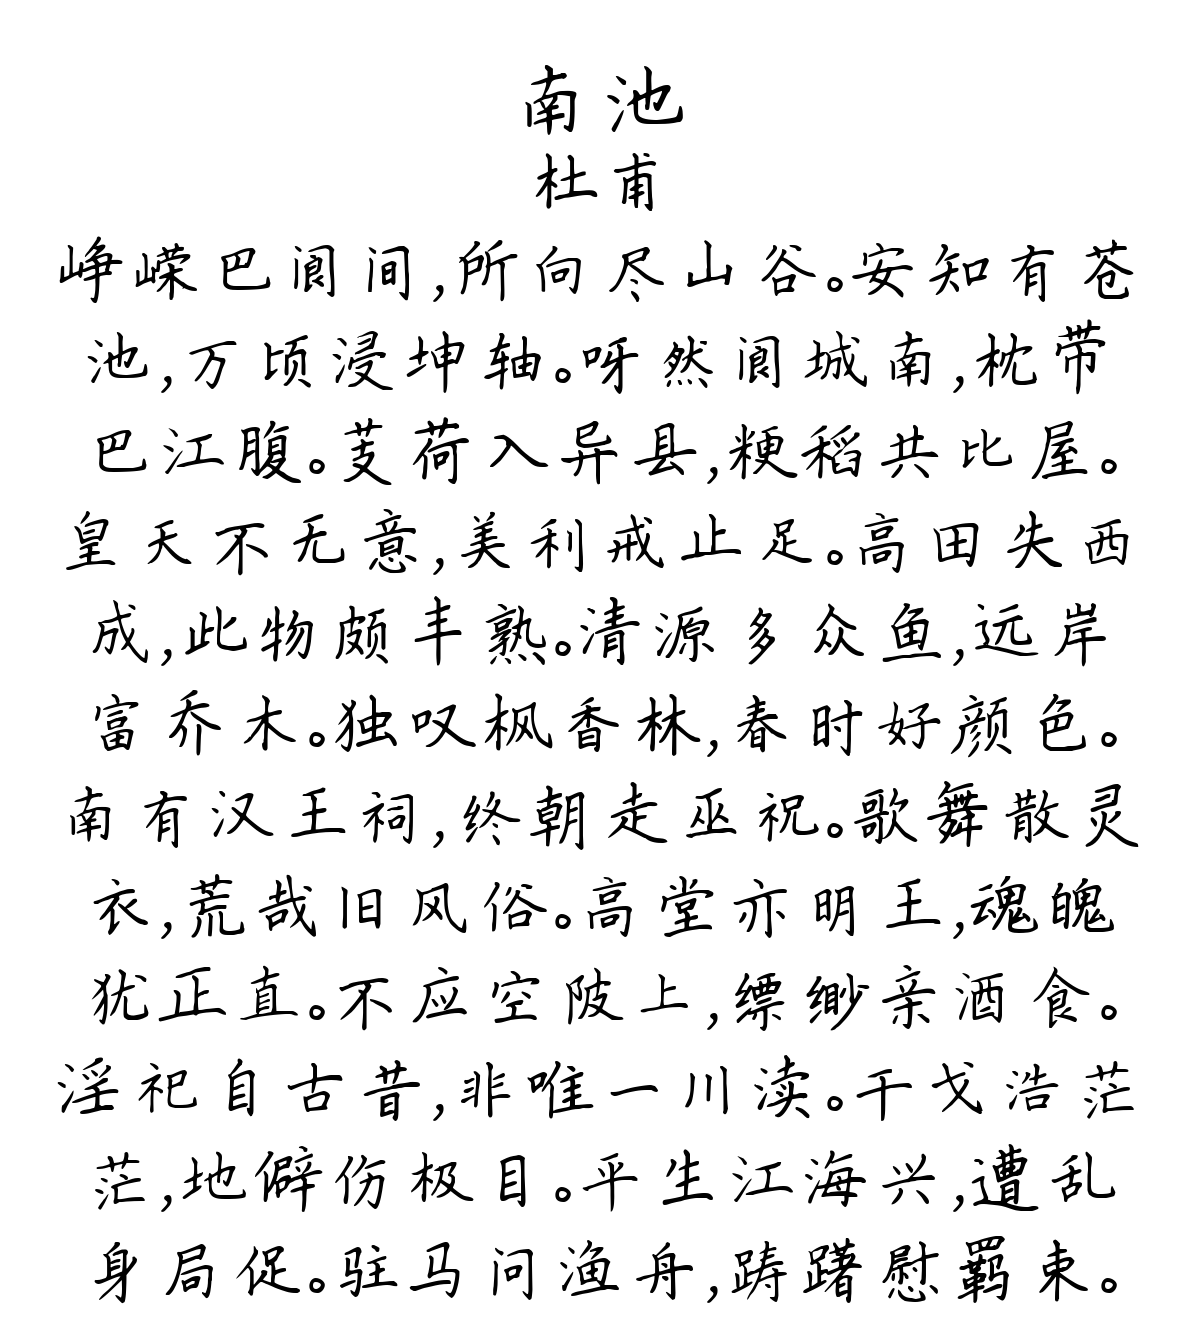 南池
杜甫
峥嵘巴阆间,所向尽山谷。安知有苍
池,万顷浸坤轴。呀然阆城南,枕带
巴江腹。芰荷入异县,粳稻共比屋。
皇天不无意,美利戒止足。高田失西
成,此物颇丰熟。清源多众鱼,远岸
富乔木。独叹枫香林,春时好颜色。
南有汉王祠,终朝走巫祝。歌舞散灵
衣,荒哉旧风俗。高堂亦明王,魂魄
犹正直。不应空陂上,缥缈亲酒食。
淫祀自古昔,非唯一川渎。干戈浩茫
茫,地僻伤极目。平生江海兴,遭乱
身局促。驻马问渔舟,踌躇慰羁束。